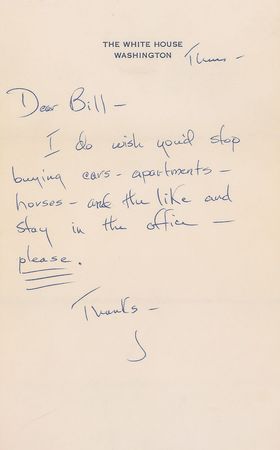 THE WHITE HOUSE
WASHINGTON
Thurs -
Dear Bill -
I do wish you'd stop
buying cars - apartments -
horses - and the like and
stay in the office -
please.
Thanks -
J